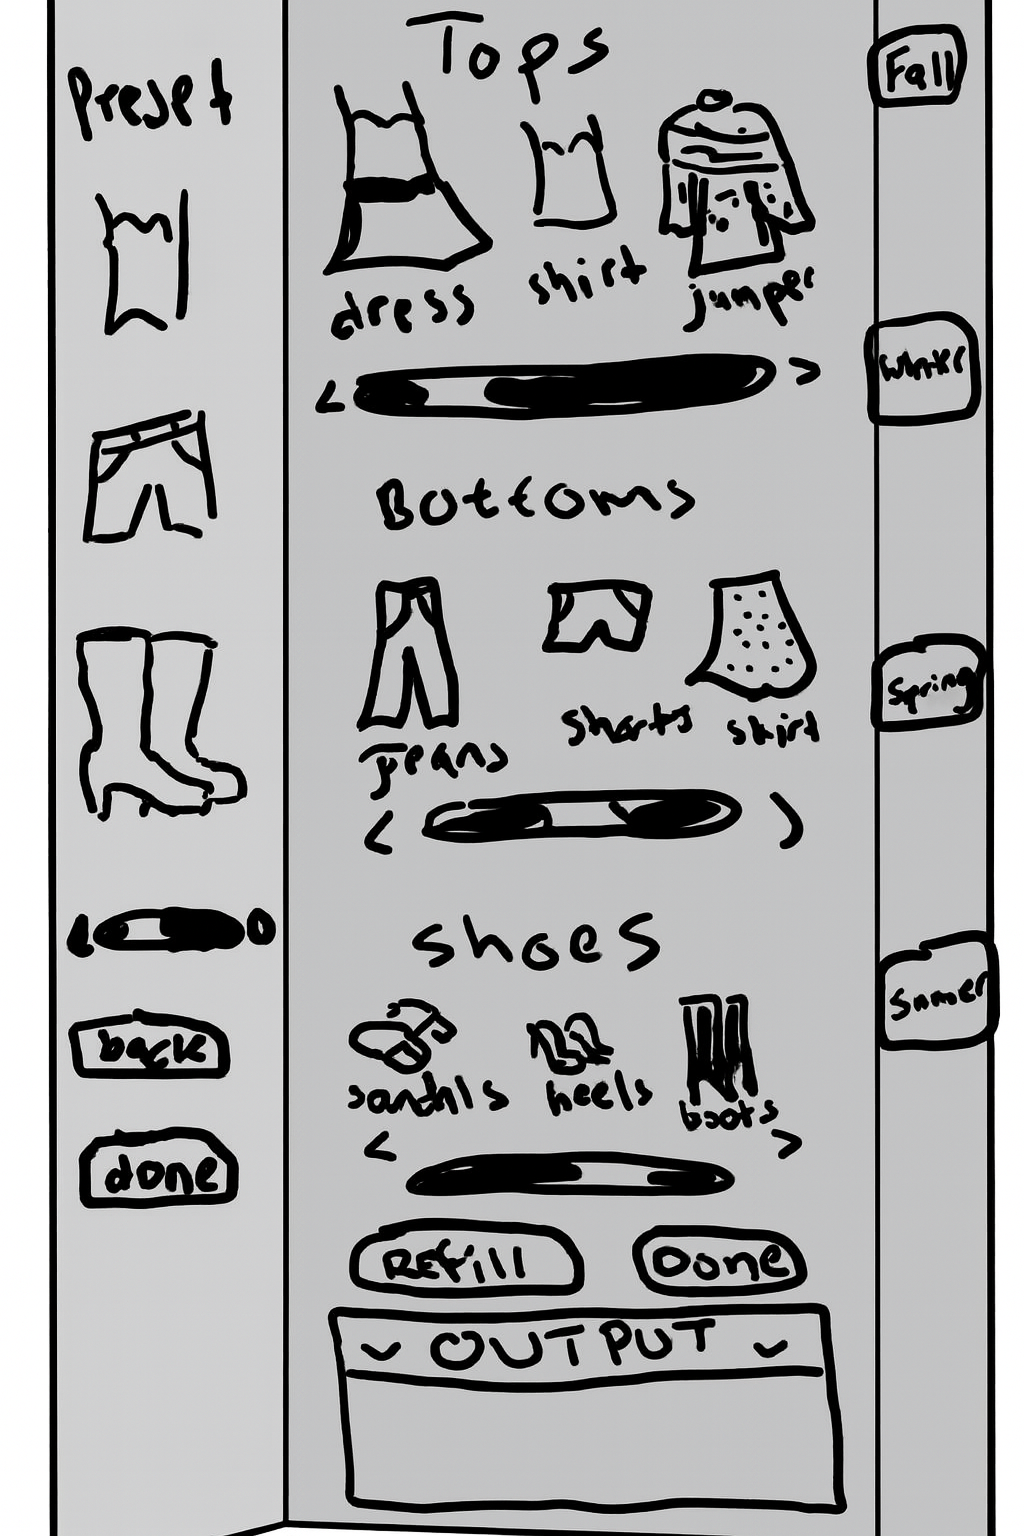 Preset
back
done
Tops
dress shirt jumper
< >
Bottoms
Jeans shorts skirt
< >
shoes
sandals heels boots
< >
REfill Done
OUTPUT
Fall
Winter
Spring
Summer